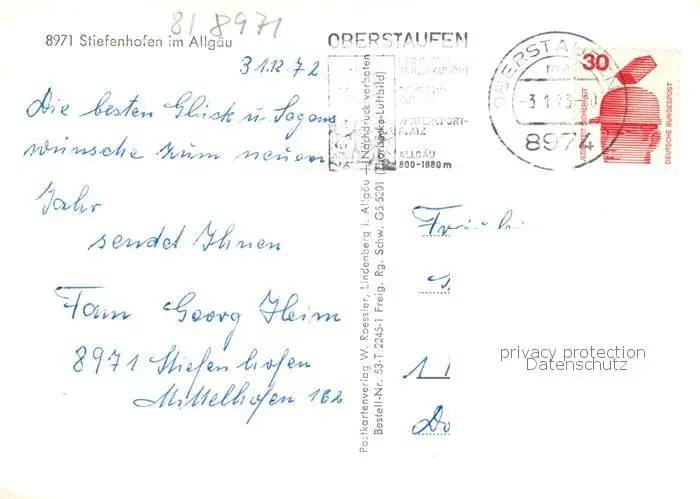 81 8971
8971 Stiefenhofen im Allgäu
31.12.72
Die besten Glück u. Segens
wünsche zum neuen
Jahr
sendet Ihnen
Fam Georg Heim
8971 Stiefenhofen
Mittelhofen 182
Postkartenverlag W. Roessler, Lindenberg i. Allgäu + (Nachdruck verboten
Bestell-Nr. 53-T 2245-1 Freig. Rg. Schw. GS 5201 (Thorbecke-Luftbild)
OBERSTAUFEN
WINTERSPORT-
PLATZ
ALLGÄU
800-1880 m
OBERSTAUFEN
-3.1.73
8974
30
JEDERZEIT SICHERHEIT
DEUTSCHE BUNDESPOST
Fräulein
1
Do
privacy protection
Datenschutz